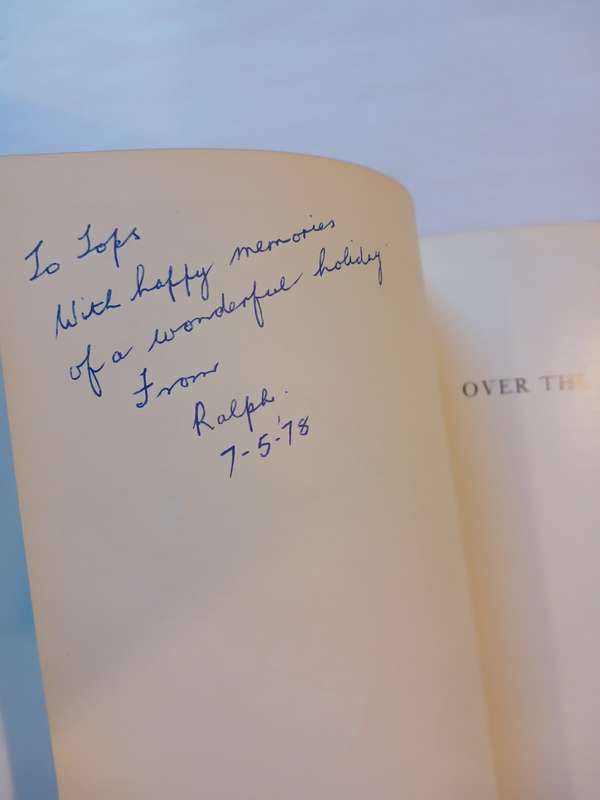 To Tops
With happy memories
of a wonderful holiday
From
Ralph.
7-5-'78
OVER THE